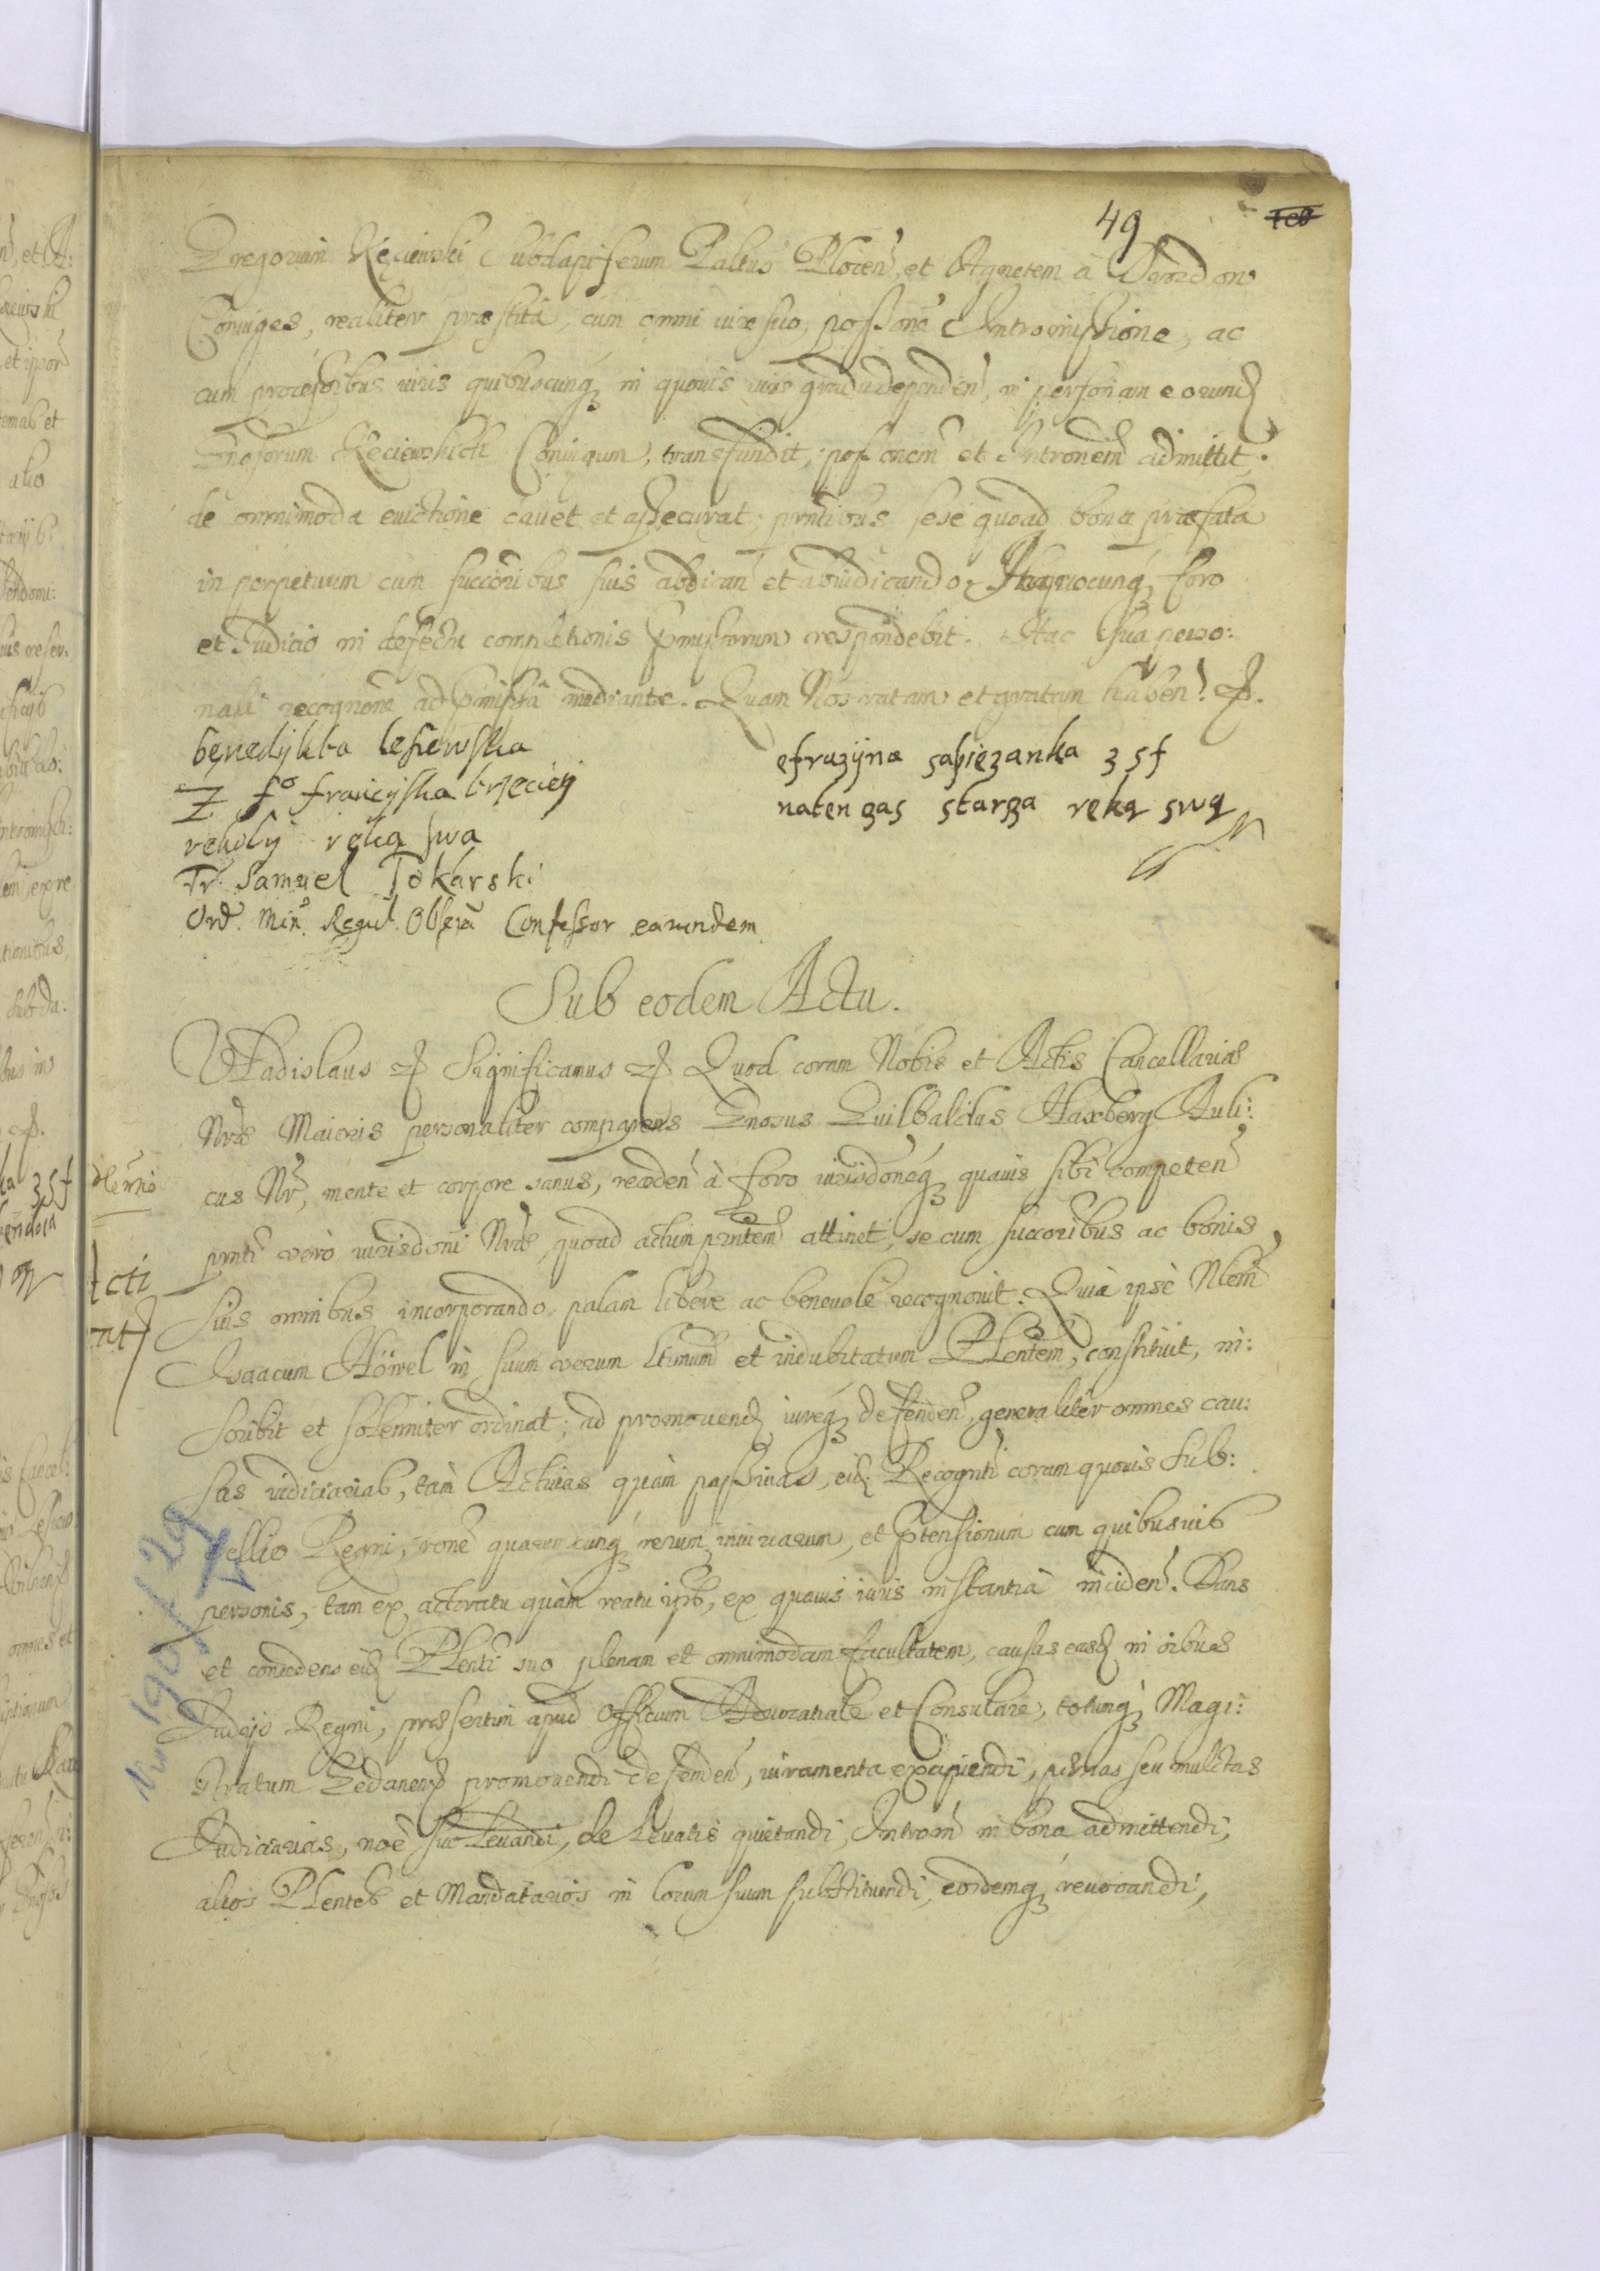 49
Gregorium Kęcierski Subdapiferum Paltus Plocen, et Agnetem à
Coniuges, realiter præstita, cum omni iure suo, possone Intromissione, ac
cum processibus iuris quibuscunq in quouis iuris gradu dependen, in personam eorund
Gnosorum Kecierskich Coniugum, transfundit, possonem et Intronem admittit,
de omnimoda euictione cauet et assecurat, prntibus sese quoad bona præfata
in perpetuum cum succoribus suis abdican et abiudicando foro
et Iudicio in defectu completionis Pmissorum respondebit. Hac sua perso:
nali recognone ad Pmissa mediante. Quam Nos ratam et gratam haben.
benedykta lesiewska
Z fo franciyska brzeciey
reką swa
Fr. Samuel Tokarski
Ord. Min. Regul. Obserua Confessor earundem
efrazyna sapiezanka 3 s f
naten zas starza reką swą
Sub eodem Actu.
Vladislaus Significamus Quod coram Nobis et Actis Cancellariæ
Nræ Maioris personaliter comparens Gnosus Guilbaldus Haxberg Auli:
cus Nr, mente et corpore sanus, receden à foro iurisdoneq quauis sibi competen
prnti vero iurisdoni Nræ, quoad actum prntem attinet, se cum succoribus ac bonis
suis omnibus incorporando, palam libere ac beneuole recognouit. Quia ipse Nlem
Isaacum Höwel in suum verum ltimum et indubitatum Plentem, constituit, in:
scribit et solenniter ordinat, ad promouend, iureq defenden, generaliter omnes cau:
sas iudiciarias, tam Actiuas quàm passiuas, eid Recognti coram quouis Sub:
sellio Regni, rone quarumcunq rerum, iniuriarum, et Ptensionum cum quibusuis
personis, tam ex actoratu quàm reatu ipso, ex quauis iuris instantia inciden. Dans
et concedens eid Plenti suo plenam et omnimodam facultatem, causas easd in oibus
Iudicijs Regni, præsertim apud Officium Aduocatiale et Consulare, totumq Magi:
stratum Gedanens promouendi defenden, iuramenta excipiendi, poenas seu mulctas
Iudiciarias, noe suo Leuandi, de Leuatis quietandi, Introm in bona admittendi,
alios Plentes et Mandatarios in locum suum substituendi, eosdemq reuocandi,